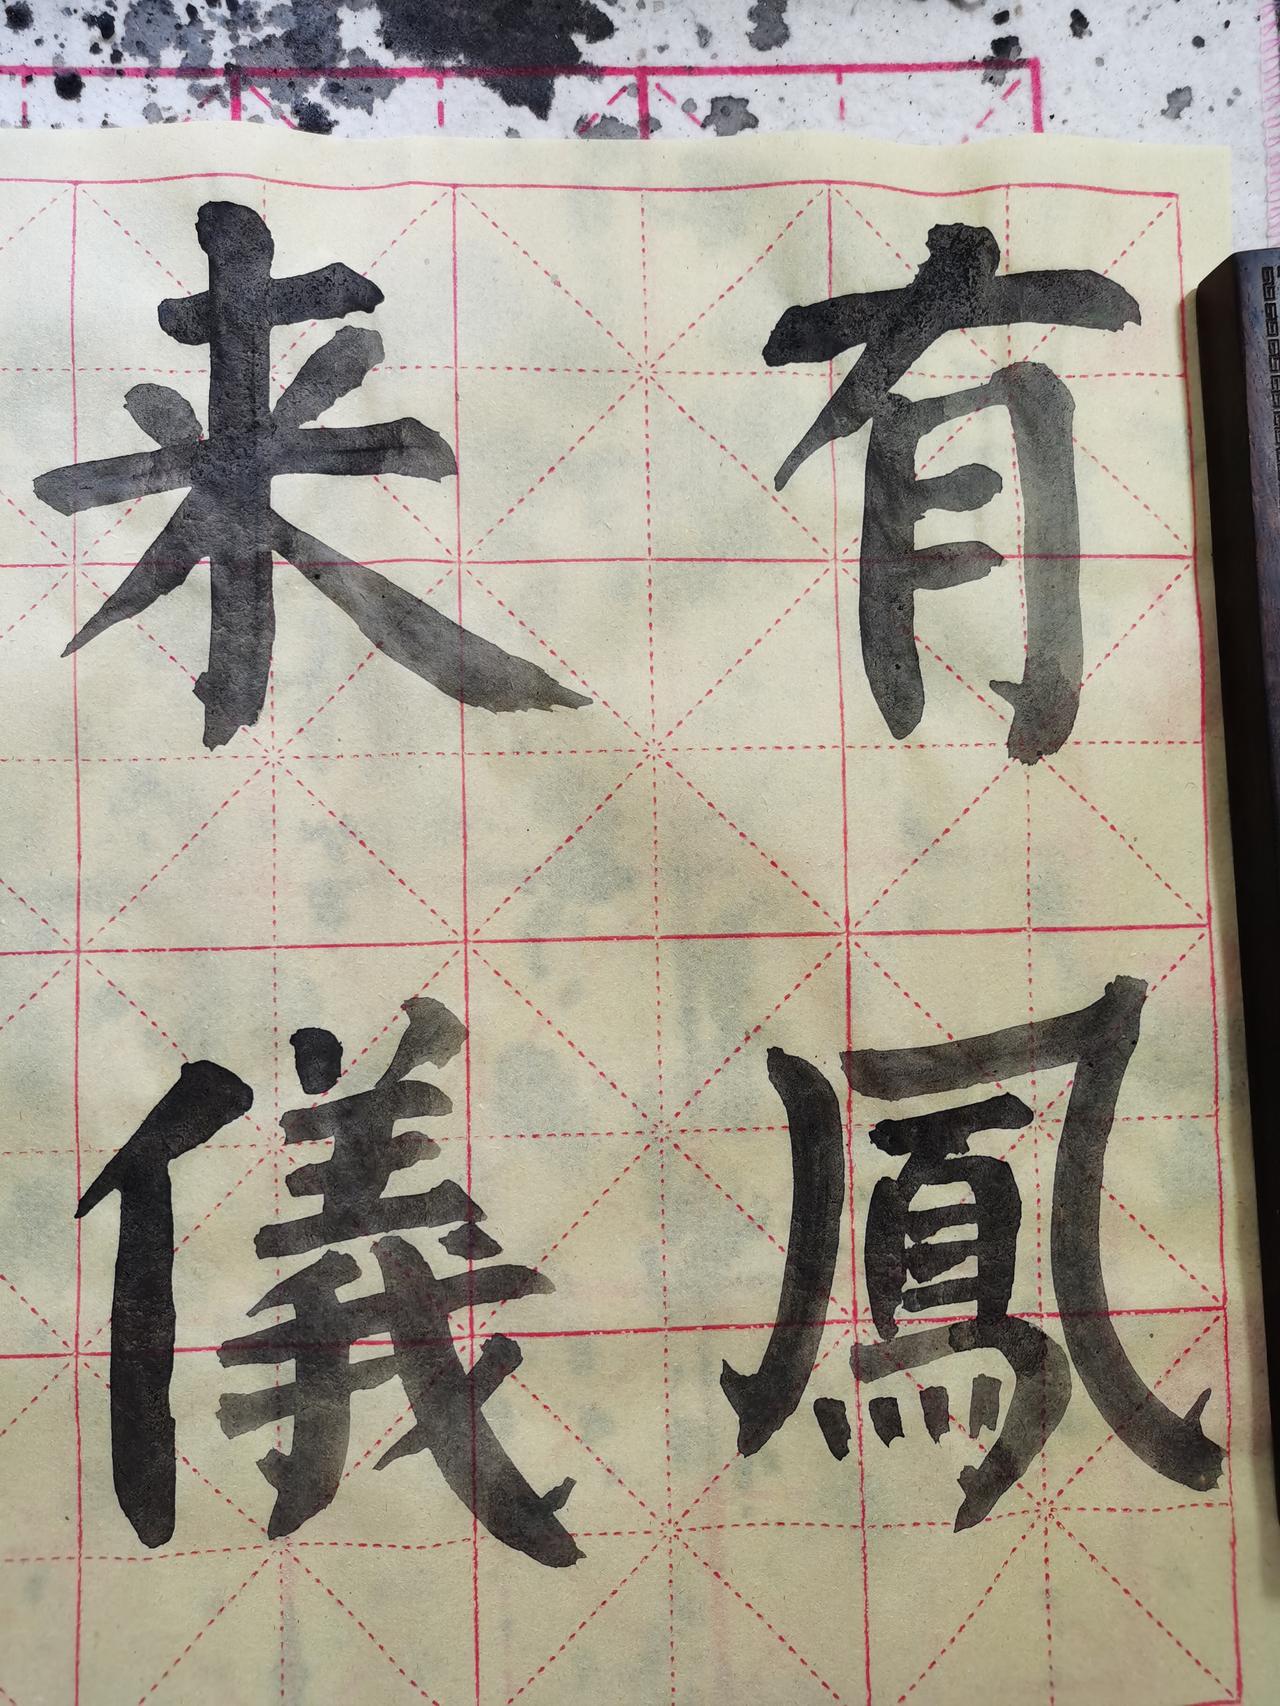 有鳳
来儀